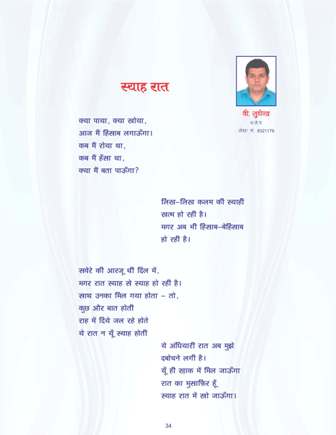 स्याह रात
पी. सुधीन्द्र
क्या पाया, क्या खोया,
आज मैं हिसाब लगाऊँगा।
कब मैं रोया था,
कब मैं हँसा था,
क्या मैं बता पाऊँगा?
लिख-लिख कलम की स्याही
खत्म हो रही है।
मगर अब भी हिसाब-बेहिसाब
हो रही है।
सवेरे की आरजू थी दिल में,
मगर रात स्याह से स्याह हो रही है।
साथ उनका मिल गया होता - तो,
कुछ और बात होती
राह में दिये जल रहे होते
ये रात न यूँ स्याह होती
ये अंधियारी रात अब मुझे
दबोचने लगी है।
यूँ ही खाक में मिल जाऊँगा
रात का मुसाफिर हूँ
स्याह रात में खो जाऊँगा।
34